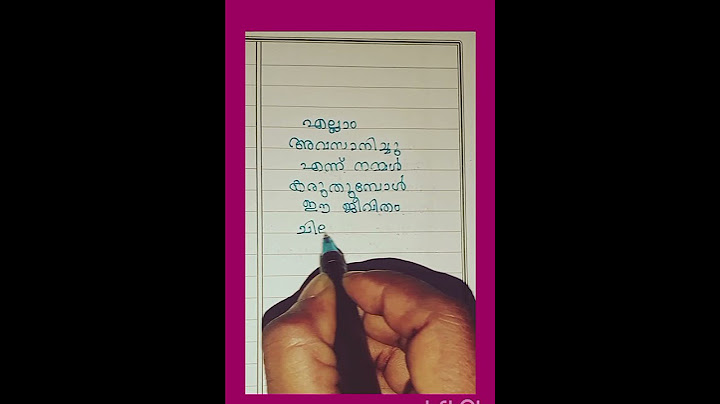 എല്ലാം
അവസാനിച്ചു
എന്ന് നമ്മൾ
കരുതുമ്പോൾ
ഈ ജീവിതം
ചില